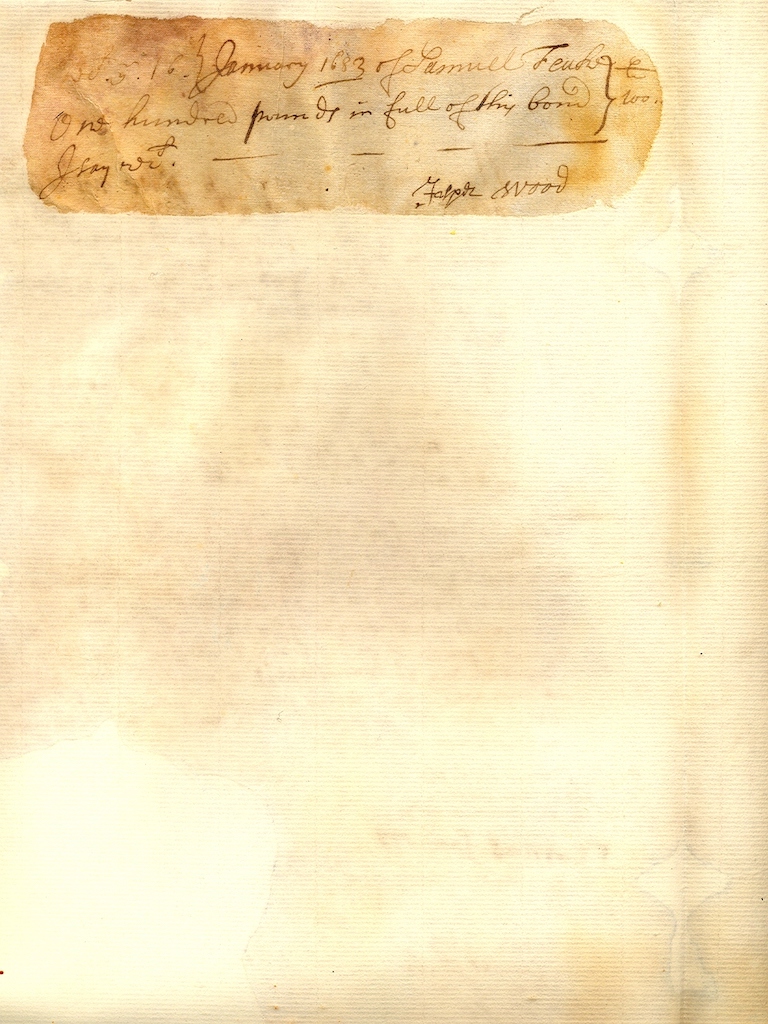 16th January 1683 of Samuell Feake
One hundred pounds in full of this bond } 100..
I say recd.
Jasper Wood